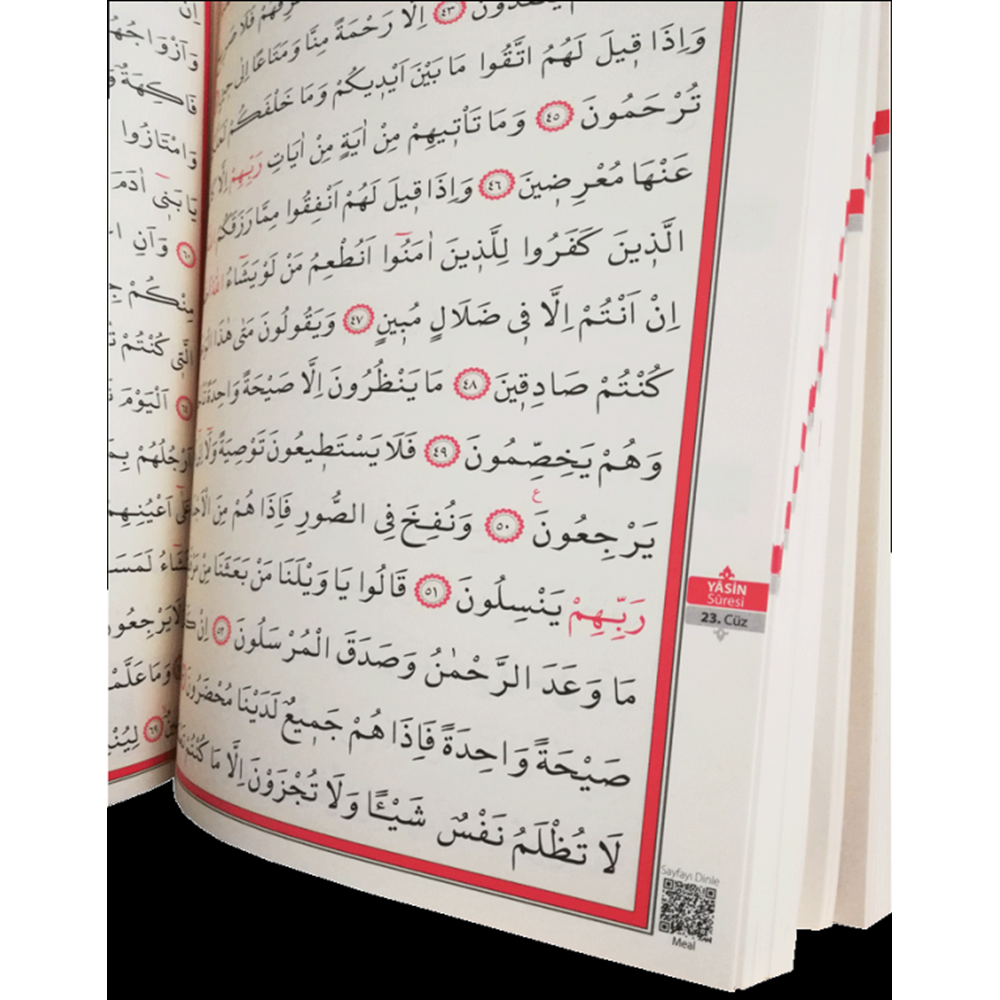 يُنْقَذُونَ ﴿٤٣﴾ اِلَّا رَحْمَةً مِنَّا وَمَتَاعًا اِلٰى
وَاِذَا قٖيلَ لَهُمُ اتَّقُوا مَا بَيْنَ اَيْدٖيكُمْ وَمَا خَلْفَكُمْ
تُرْحَمُونَ ﴿٤٥﴾ وَمَا تَأْتٖيهِمْ مِنْ اٰيَةٍ مِنْ اٰيَاتِ رَبِّهِمْ اِلَّا
عَنْهَا مُعْرِضٖينَ ﴿٤٦﴾ وَاِذَا قٖيلَ لَهُمْ اَنْفِقُوا مِمَّا رَزَقَكُمُ
الَّذٖينَ كَفَرُوا لِلَّذٖينَ اٰمَنُٓوا اَنُطْعِمُ مَنْ لَوْ يَشَٓاءُ اللّٰهُ
اِنْ اَنْتُمْ اِلَّا فٖى ضَلَالٍ مُبٖينٍ ﴿٤٧﴾ وَيَقُولُونَ مَتٰى هٰذَا
كُنْتُمْ صَادِقٖينَ ﴿٤٨﴾ مَا يَنْظُرُونَ اِلَّا صَيْحَةً وَاحِدَةً
وَهُمْ يَخِصِّمُونَ ﴿٤٩﴾ فَلَا يَسْتَطٖيعُونَ تَوْصِيَةً
يَرْجِعُونَ ع ﴿٥٠﴾ وَنُفِخَ فِى الصُّورِ فَاِذَا هُمْ مِنَ
رَبِّهِمْ يَنْسِلُونَ ﴿٥١﴾ قَالُوا يَا وَيْلَنَا مَنْ بَعَثَنَا مِنْ
مَا وَعَدَ الرَّحْمٰنُ وَصَدَقَ الْمُرْسَلُونَ ﴿٥٢﴾ اِنْ
صَيْحَةً وَاحِدَةً فَاِذَا هُمْ جَمٖيعٌ لَدَيْنَا مُحْضَرُونَ
لَا تُظْلَمُ نَفْسٌ شَيْـًٔا وَلَا تُجْزَوْنَ اِلَّا مَا كُنْتُمْ
YÂSÎN
Sûresi
23. Cüz
Sayfayı Dinle
Meal
فَاكِهَةٌ
وَامْتَازُوا
يَا بَنٖٓى اٰدَمَ
﴿٦٠﴾ وَاَنِ
مِنْكُمْ
الَّتٖى كُنْتُمْ
اَلْيَوْمَ
اَرْجُلُهُمْ
عَلٰٓى اَعْيُنِهِمْ
وَمَا عَلَّمْ
﴿٦٩﴾